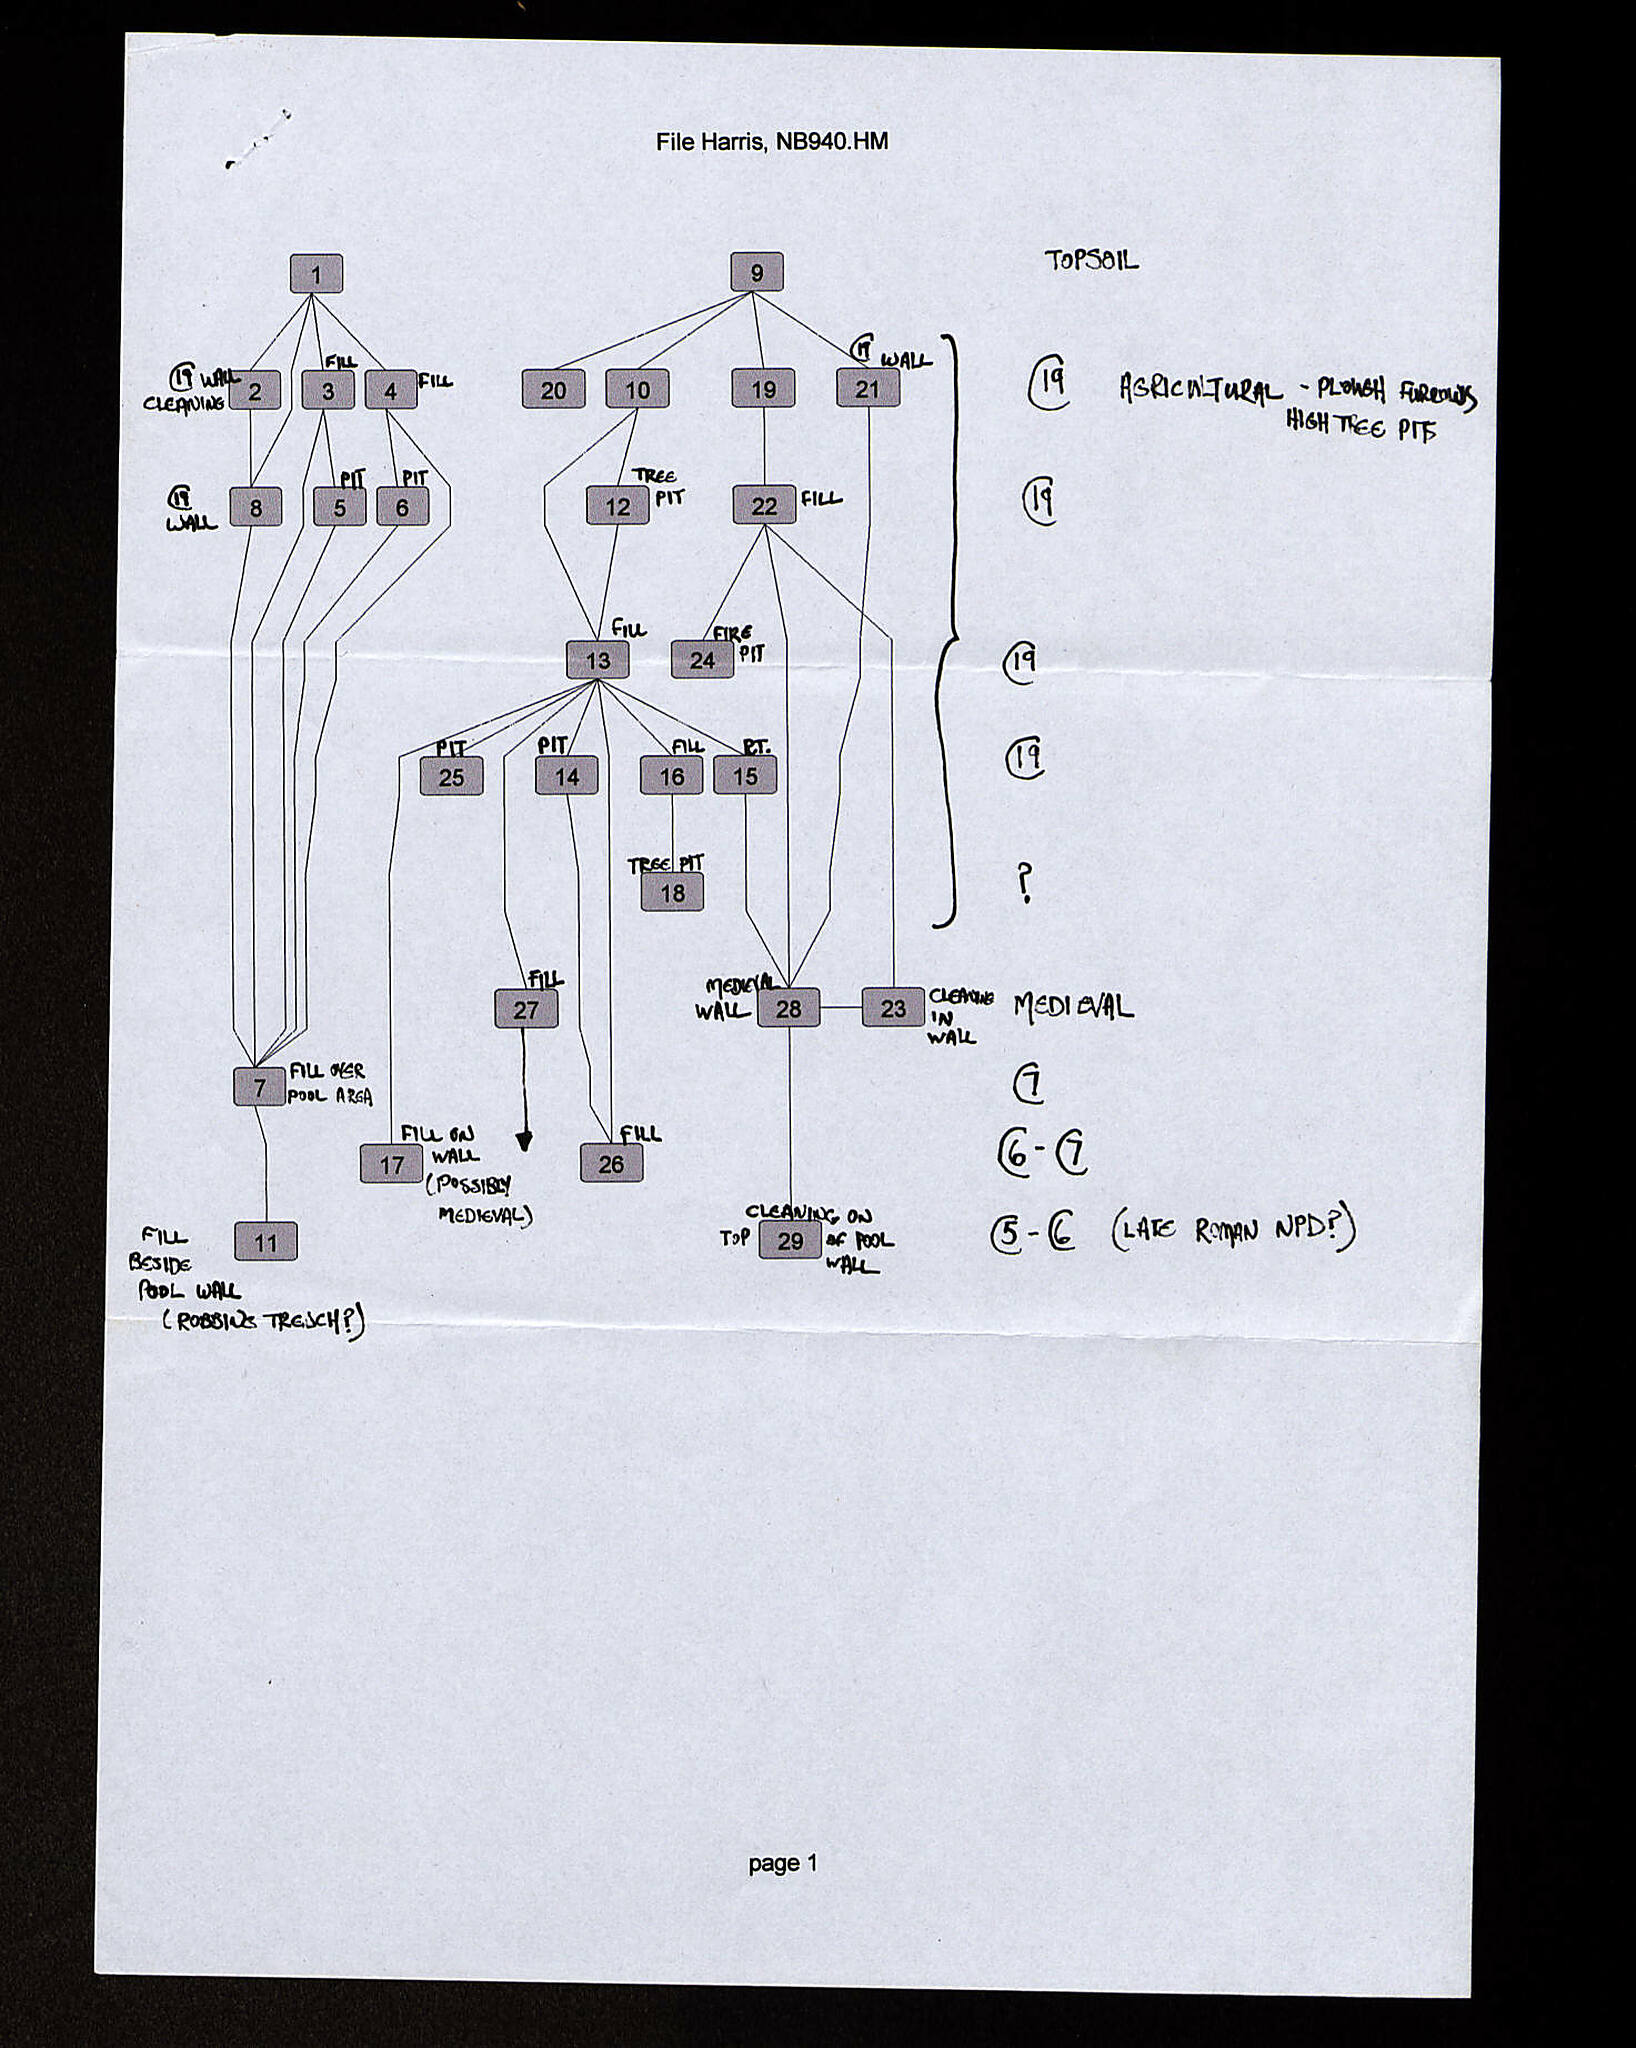 File Harris, NB940.HM
1
9
TOPSOIL
19 WALL
CLEANING
2
FILL
3
4
FILL
20
10
19
19 WALL
21
19
AGRICULTURAL - PLOUGH FURROWS
HIGH TREE PITS
19
WALL
8
PIT
5
PIT
6
TREE
PIT
12
22
FILL
19
FILL
13
24
FIRE
PIT
19
PIT
25
PIT
14
FILL
16
15
19
TREE PIT
18
?
FILL
27
MEDIEVAL
WALL
28
23
CLEANING
IN
WALL
MEDIEVAL
7
FILL OVER
POOL AREA
7
17
FILL ON
WALL
(POSSIBLY
MEDIEVAL)
FILL
26
6 - 7
FILL
BESIDE
POOL WALL
(ROBBING TRENCH?)
11
CLEANING ON
TOP
29
OF POOL
WALL
5 - 6 (LATE ROMAN NPD?)
page 1